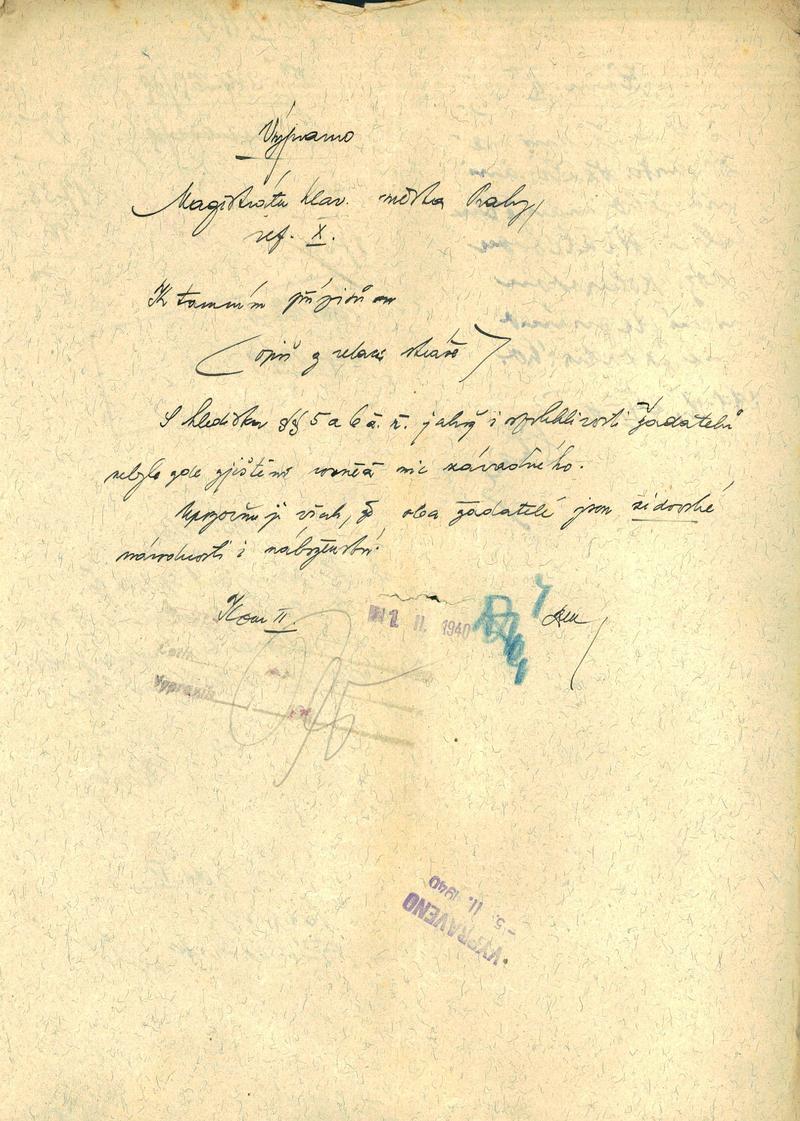 Výpravno
Magistrátu hlav. města Prahy,
ref. X.
K tamním přípisům
(opiš z relace stráže)
S hlediska §§ 5 a 6 ž. ř. jakož i spolehlivosti žadatelů
nebylo zde zjištěno rovněž nic závadného.
Upozorňuji však, že oba žadatelé jsou židovské
národnosti i náboženství.
Kom II.
2. II. 1940
Vypraveno
VYPRAVENO
- 5. II. 1940